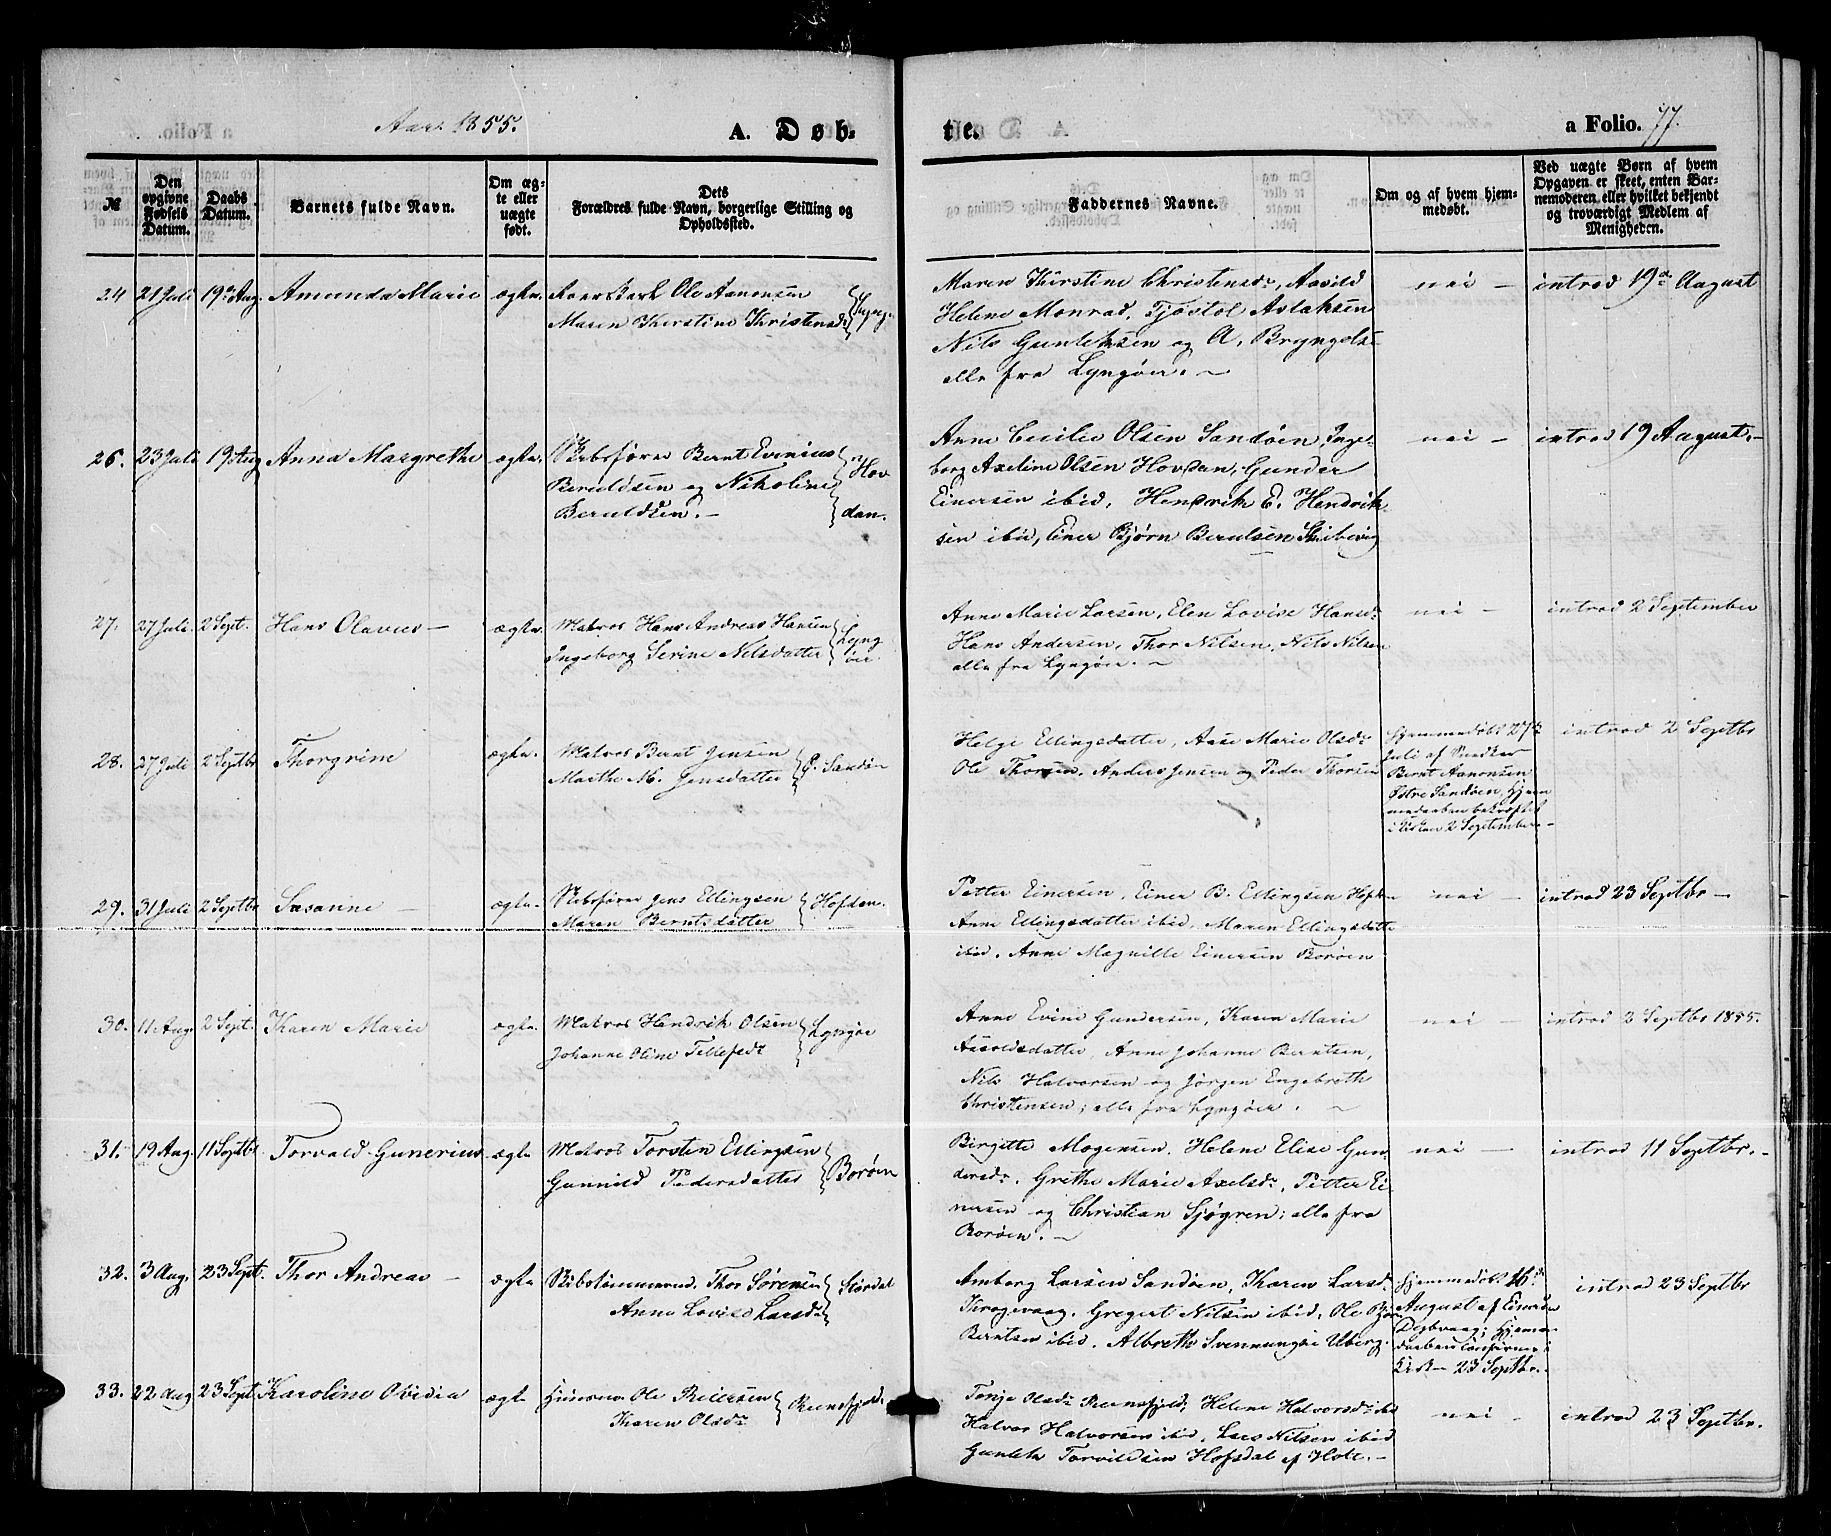 Aar 1855.
A. Døb-
te.
a Folio. 77.
№
Den opgivne Fødsels Datum.
Daabs Datum.
Barnets fulde Navn.
Om ægte eller uægte født.
Dets Forældres fulde Navn, borgerlige Stilling og Opholdssted.
Faddernes Navne.
Om og af hvem hjemmedøbt.
Ved uægte Børn af hvem Opgaven er skeet, enten Barnemoderen eller hvilket bekjendt og troværdigt Medlem af Menigheden.
24 21 Juli 19de Aug. Amunda Marie ægte. Ole Aanonsen
Maren Kirstine Christensd.
Maren Kirstine Christensdr, Aavild
Helene Monrad, Tjøstol Aslaksen
Nils Gunleksen og A. Bryngels
alle fra Lyngøer.
nei – introd 19de August
26. 23 Juli 19 Aug Anna Margrethe ægte. Skibsfører Bernt Evinius
Beruldsen og Nikoline
Beruldsen. –
Hov
dan.
Anne Cecilie Olsen Sandøen, Inge-
borg Axeline Olsen Hovdan, Gunder
Einersen ibid, Hendrik E. Hendrik
sen ibid, Einer Bjørn Berulsen Skibvig
nei – introd 19 August. –
27. 27 Juli 2 Sept. Hans Olavus – ægte. Matros Hans Andreas Hansen
Ingeborg Serine Nilsdatter
Lyng
øer.
Anne Marie Larsen, Elen Lovise Hansdr
Hans Andersen, Thor Nilsen, Nils Nilsen
alle fra Lyngøer. –
nei – introd 2 September
28. 27 Juli 2 Septbr Thorgrine ægte. Matros Bernt Jensen
Marthe M. Jensdatter
Ø. Sandøn
Helge Ellingsdatter, Aase Marie Olsdr
Ole Thorsen, Anders Jensen og Peder Thorsen
Hjemmedøbt 27de
Juli af Snedker
Bernt Aanonsen
Østre Sandøen, Hjem
medaaben bekræftet
i Kirken 2 September. –
introd 2 Septbr
29. 31 Juli 2 Septbr Susanne – ægte. Skibsfører Jens Ellingsen
Maren Berntsdatter
Hofden.
Petter Einersen, Einer B. Ellingsen Hofden
Anne Ellingsdatter ibid, Maren Ellingsdatter
ibid, Anne Magnille Einersen Borøen
nei – introd 23 Septbr –
30. 11 Aug. 2 Sept. Karen Marie ægte. Matros Hendrik Olsen
Johanne Oline Tellefsdr
Lyngøer
Anne Evine Gundersen, Karen Marie
Aasoldsdatter, Anne Johanne Berntsen,
Nils Halvorsen og Jørgen Engebreth
Christensen; alle fra Lyngøer. –
nei – introd 2 Septbr 1855.
31. 19 Aug. 11 Septbr Torvald Gunerius ægte Matros Torsten Ellingsen
Gunnild Pedersdatter
Borøen
Birgitte Mogensen, Helene Elise Gun
dersdr, Grethe Marie Axelsdr, Petter Ei
nersen og Christian Sjøgren; alle fra
Borøen. –
nei – introd 11 Septbr. –
32. 3 Aug. 23 Sept. Thor Andreas – ægte Skibstømmermd. Thor Sørensen
Anne Lovise Larsdr
Størdal
Amborg Larsen Sandøen, Karen Larsdr
Krogevaag, Gregert Nilsen ibid, Ole Bjørn
Berntsen ibid, Albreth Svennungsen Uberg.
Hjemmedøbt 16de
August af Einersen
Dybvaag; Hjemme
daaben confirmer i
Kirken 23 Septbr.
introd 23 Septbr
33. 22 Aug 23 Sept Karoline Ovidia ægte Huusm. Ole Reiersen
Karen Olsdr
Reinsfjeld
Tonje Olsdr Reinsfjeld, Helene Halvorsdr ibd
Halvor Halvorsen ibid, Lars Nilsen ibid
Gunlek Torvildsen Hofsdal af Holt. –
nei – introd 23 Septbr.